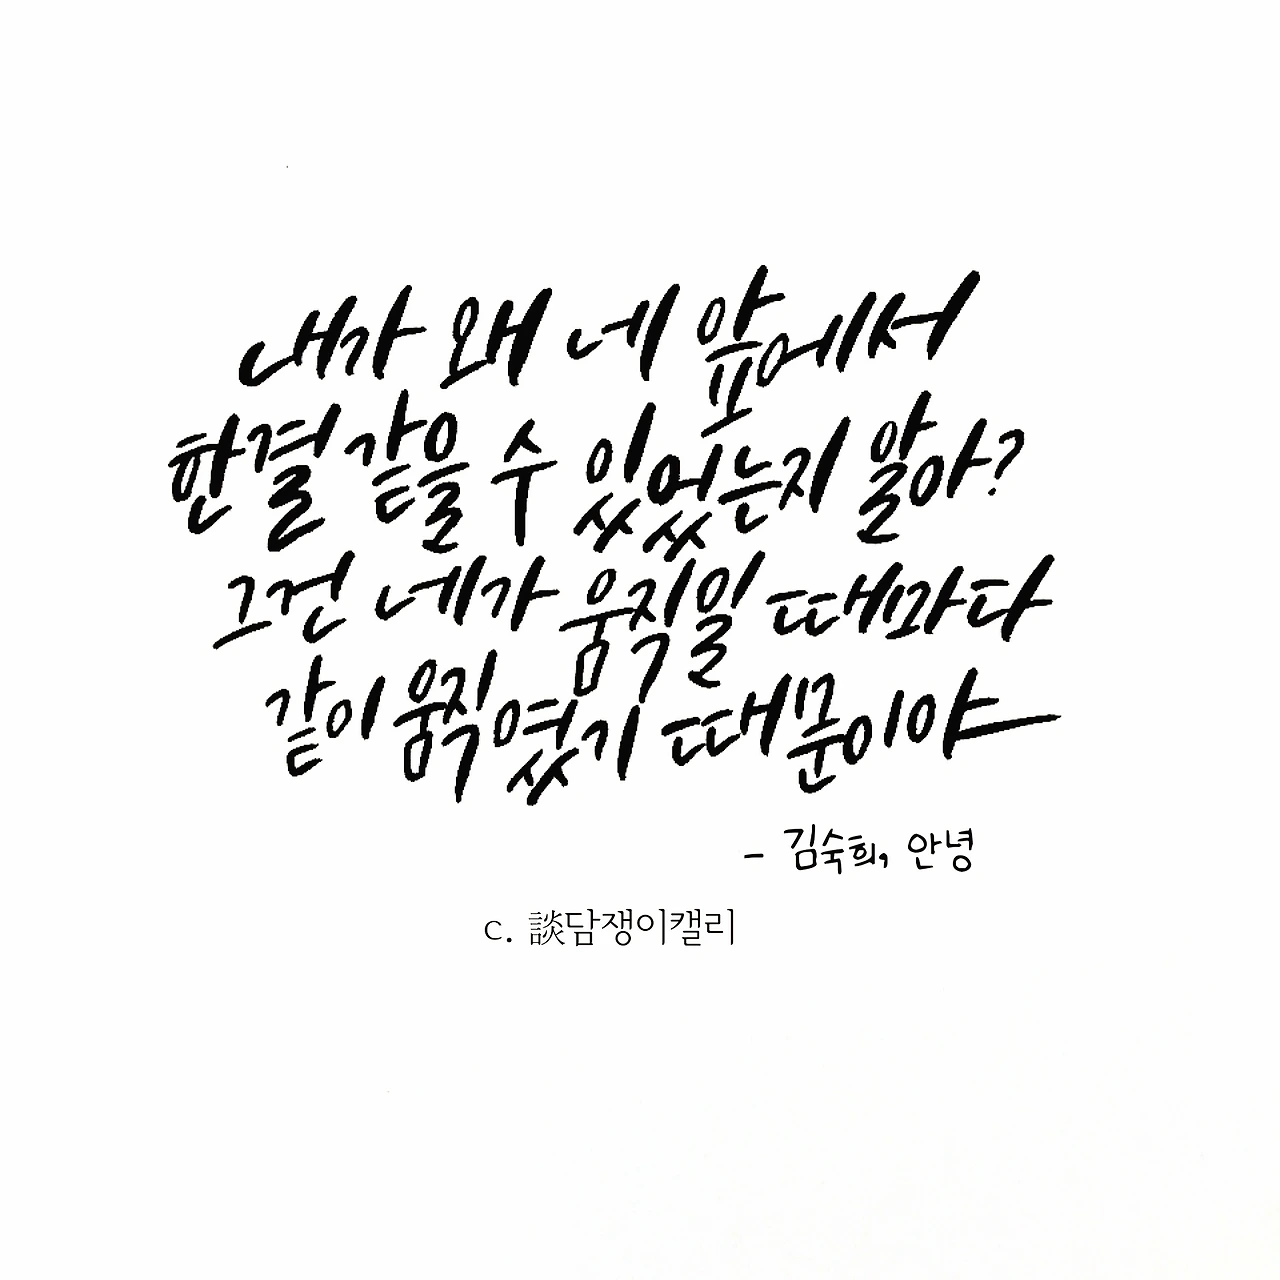 내가 왜 네 앞에서
한결 같을 수 있었는지 알아?
그건 네가 움직일 때마다
같이 움직였기 때문이야
- 김숙희, 안녕
c. 談담쟁이캘리